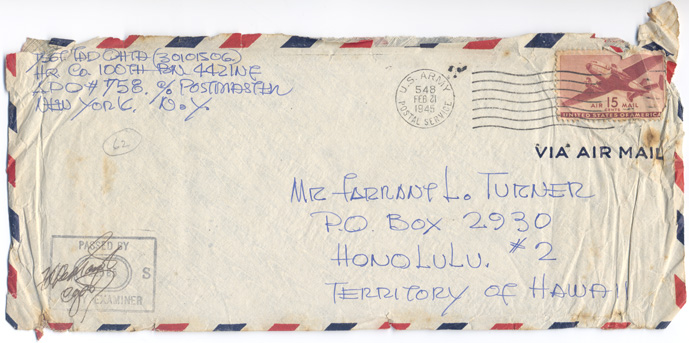 TAD OHTA (30101506)
HQ Co. 100TH BN 442INF
APO #758. % POSTMASTER
NEW YORK. N.Y.
U.S. ARMY
548
FEB 21
1945
POSTAL SERVICE
AIR 15 MAIL
CENTS
UNITED STATES OF AMERICA
VIA AIR MAIL
62
MR FARRANT L. TURNER
P.O. BOX 2930
HONOLULU. #2
TERRITORY OF HAWAII
PASSED BY
S
EXAMINER